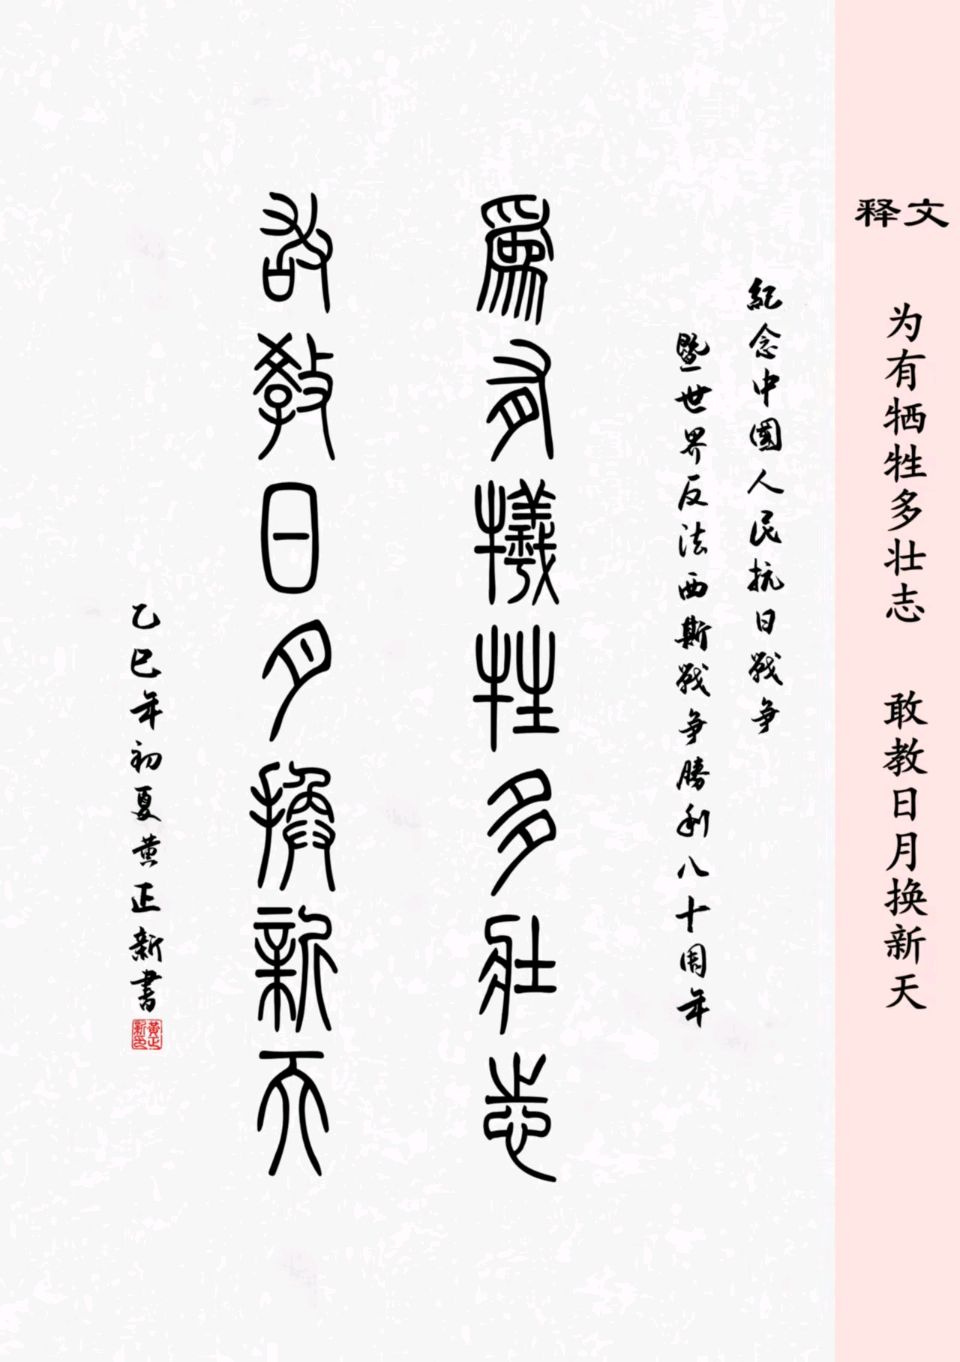 释文
为有牺牲多壮志 敢教日月换新天
紀念中國人民抗日戰爭
暨世界反法西斯戰爭勝利八十周年
爲有犧牲多壯志
敢教日月換新天
乙巳年初夏黄正新書
黄正新印